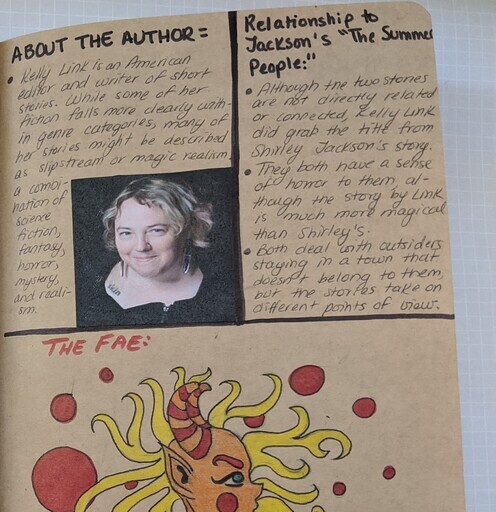 ABOUT THE AUTHOR =
• Kelly Link is an American
editor and writer of short
stories. While some of her
fiction falls more clearly with-
in genre categories, many of
her stories might be described
as slipstream or magic realism,
a combi-
nation of
science
fiction,
fantasy,
horror,
mystery,
and reali-
sm.
Relationship to
Jackson's "The Summer
People:"
• Although the two stories
are not directly related
or connected, Kelly Link
did grab the title from
Shirley Jackson's story.
• They both have a sense
of horror to them al-
though the story by Link
is much more magical
than Shirley's.
• Both deal with outsiders
staying in a town that
doesn't belong to them,
but the stories take on
different points of view.
THE FAE: